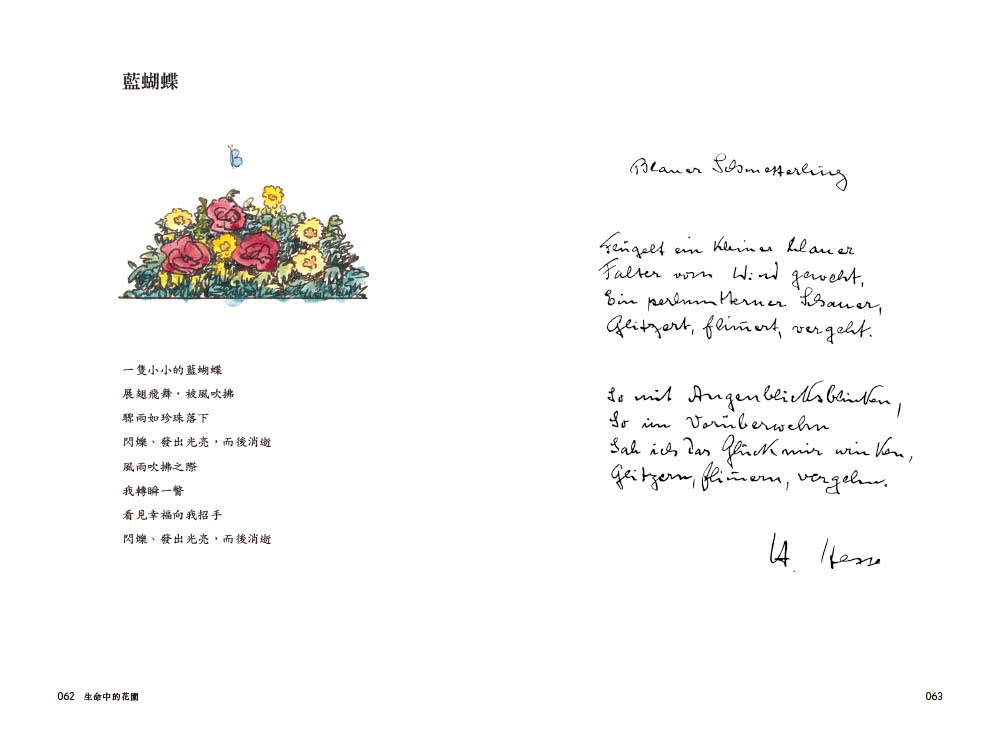 藍蝴蝶
一隻小小的藍蝴蝶
展翅飛舞，被風吹拂
驟雨如珍珠落下
閃爍、發出光亮，而後消逝
風雨吹拂之際
我轉瞬一瞥
看見幸福向我招手
閃爍、發出光亮，而後消逝
062 生命中的花園
Blauer Schmetterling
Flügelt ein kleiner blauer
Falter vom Wind geweht,
Ein perlmutterner Schauer,
Glitzert, flimert, vergeht.
So mit Augenblicksblinken,
So im Vorüberwehn
Sah ich das Glück mir winken,
Glitzern, flimern, vergehn.
H. Hesse
063